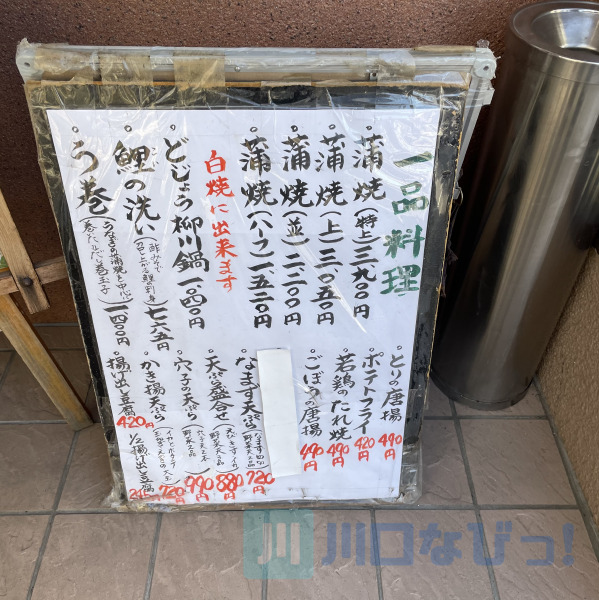 一品料理
・蒲焼(特)三、九〇〇円
・蒲焼(上)三、〇五〇円
・蒲焼(並)二、二〇〇円
・蒲焼(ハーフ)一、五二〇円
白焼に出来ます
・どじょう柳川鍋一、〇四〇円
・鯉の洗い(酢みそで召し上がる鯉の刺身)七六五円
・う巻(うなぎの蒲焼を中心に巻いただし巻玉子)一、四〇〇円
・とりの唐揚490円
・ポテトフライ420円
・若鶏のたれ焼490円
・ごぼうの唐揚490円
・なまず天ぷら720円
・天ぷら盛合せ(えび きす イカ 野菜三品)880円
・穴子の天ぷら(穴子天二本 野菜二品)990円
・かき揚天ぷら720円
・揚げ出し豆腐420円
½揚げ出し豆腐245円
川口なびっ!